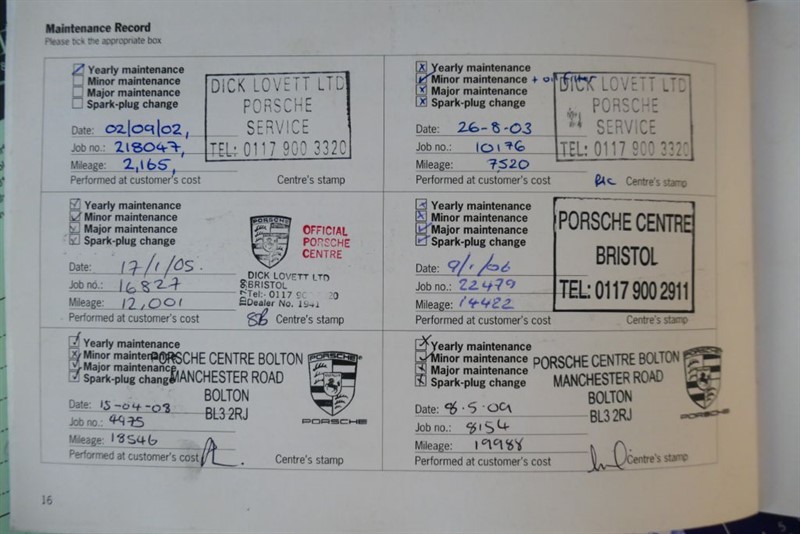 Maintenance Record
Please tick the appropriate box
Yearly maintenance
Minor maintenance
Major maintenance
Spark-plug change
DICK LOVETT LTD
PORSCHE
SERVICE
TEL: 0117 900 3320
Date: 02/09/02,
Job no.: 218047,
Mileage: 2,165,
Performed at customer's cost
Centre's stamp
Yearly maintenance
Minor maintenance + oil filter
Major maintenance
Spark-plug change
DICK LOVETT LTD
PORSCHE
SERVICE
TEL: 0117 900 3320
Date: 26-8-03
Job no.: 10176
Mileage: 7520
Performed at customer's cost
Centre's stamp
Yearly maintenance
Minor maintenance
Major maintenance
Spark-plug change
PORSCHE
OFFICIAL
PORSCHE
CENTRE
DICK LOVETT LTD
BRISTOL
Tel:- 0117 9 20
Dealer No. 1941
Date: 17/1/05.
Job no.: 16827
Mileage: 12,001
Performed at customer's cost
SB
Centre's stamp
Yearly maintenance
Minor maintenance
Major maintenance
Spark-plug change
PORSCHE CENTRE
BRISTOL
TEL: 0117 900 2911
Date: 9/1/06
Job no.: 22479
Mileage: 14422
Performed at customer's cost
Centre's stamp
Yearly maintenance
Minor maintenance
Major maintenance
Spark-plug change
PORSCHE CENTRE BOLTON
MANCHESTER ROAD
BOLTON
BL3 2RJ
PORSCHE
PORSCHE
Date: 15-04-08
Job no.: 9975
Mileage: 18546
Performed at customer's cost
Centre's stamp
Yearly maintenance
Minor maintenance
Major maintenance
Spark-plug change
PORSCHE CENTRE BOLTON
MANCHESTER ROAD
BOLTON
BL3 2RJ
PORSCHE
PORSCHE
Date: 8.5.09
Job no.: 8154
Mileage: 19988
Performed at customer's cost
Centre's stamp
16